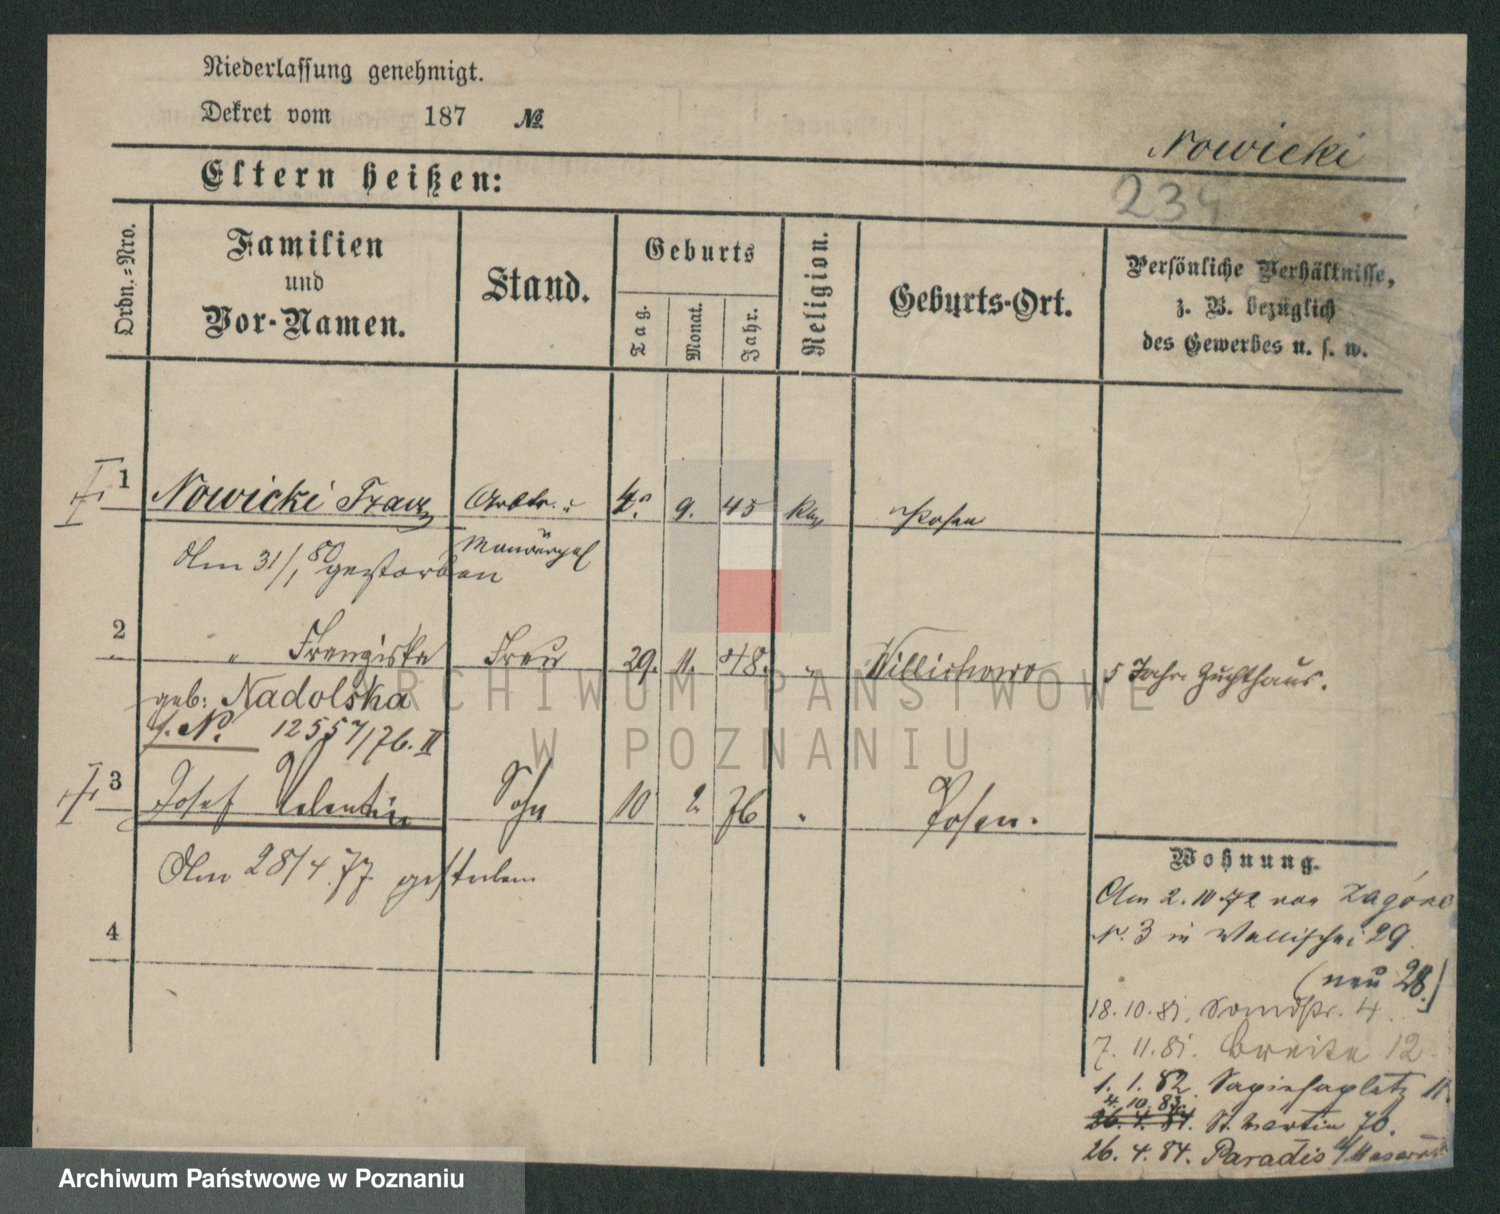 Niederlassung genehmigt.
Dekret vom 187 №
Nowicki
Eltern heißen:
234
Ordn.=Nro.
Familien
und
Vor-Namen.
Stand.
Geburts
Tag.
Monat.
Jahr.
Religion.
Geburts-Ort.
Persönliche Verhältnisse,
z. B. bezüglich
des Gewerbes u. s. w.
1 Nowicki Franz Arbtr. 4. 9. 45 Kath Posen
Am 31/1 80 gestorben
2 " Franziska Frau 29. 11. 48. " 5 Jahr Zuchthaus.
geb: Nadolska
f. N. 12557/76. II
3 Josef Valentin Sohn 10 2 76 " Posen.
Am 28/4 77 gestorben
4
Wohnung.
Am 2. 10 72 von Zagórze
N. 3 in Wallischei 29
(neu 28.)
18. 10. 81. 4.
7. 11. 81. Breite 12.
1. 1. 82. Sapiehaplatz 11.
4. 10. 83.
26. 4. 84. St. Martin 70.
26. 4. 84. Paradis
ARCHIWUM PAŃSTWOWE
W POZNANIU
Archiwum Państwowe w Poznaniu